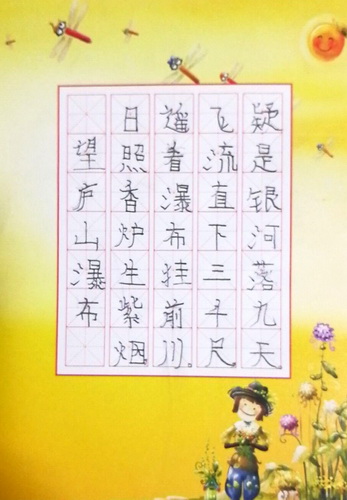 望庐山瀑布
日照香炉生紫烟。
遥看瀑布挂前川。
飞流直下三千尺。
疑是银河落九天